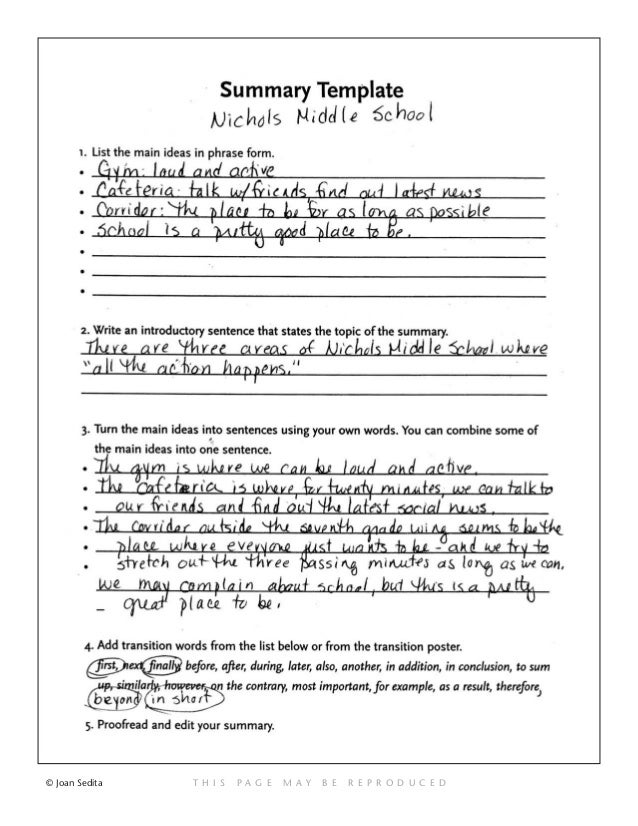 Summary Template
Nichols Middle School
1. List the main ideas in phrase form.
• Gym: loud and active
• Cafeteria: talk w/friends, find out latest news
• Corridor: the place to be for as long as possible
• School is a pretty good place to be.
•
•
•
2. Write an introductory sentence that states the topic of the summary.
There are three areas of Nichols Middle School where
"all the action happens."
3. Turn the main ideas into sentences using your own words. You can combine some of
the main ideas into one sentence.
• The gym is where we can be loud and active.
• The cafeteria is where, for twenty minutes, we can talk to
• our friends and find out the latest social news.
• The corridor outside the seventh grade wing seems to be the
• place where everyone just wants to be - and we try to
• stretch out the three passing minutes as long as we can.
We may complain about school, but this is a pretty
– great place to be.
4. Add transition words from the list below or from the transition poster.
first, next, finally, before, after, during, later, also, another, in addition, in conclusion, to sum
up, similarly, however, on the contrary, most important, for example, as a result, therefore,
beyond in short
5. Proofread and edit your summary.
© Joan Sedita THIS PAGE MAY BE REPRODUCED